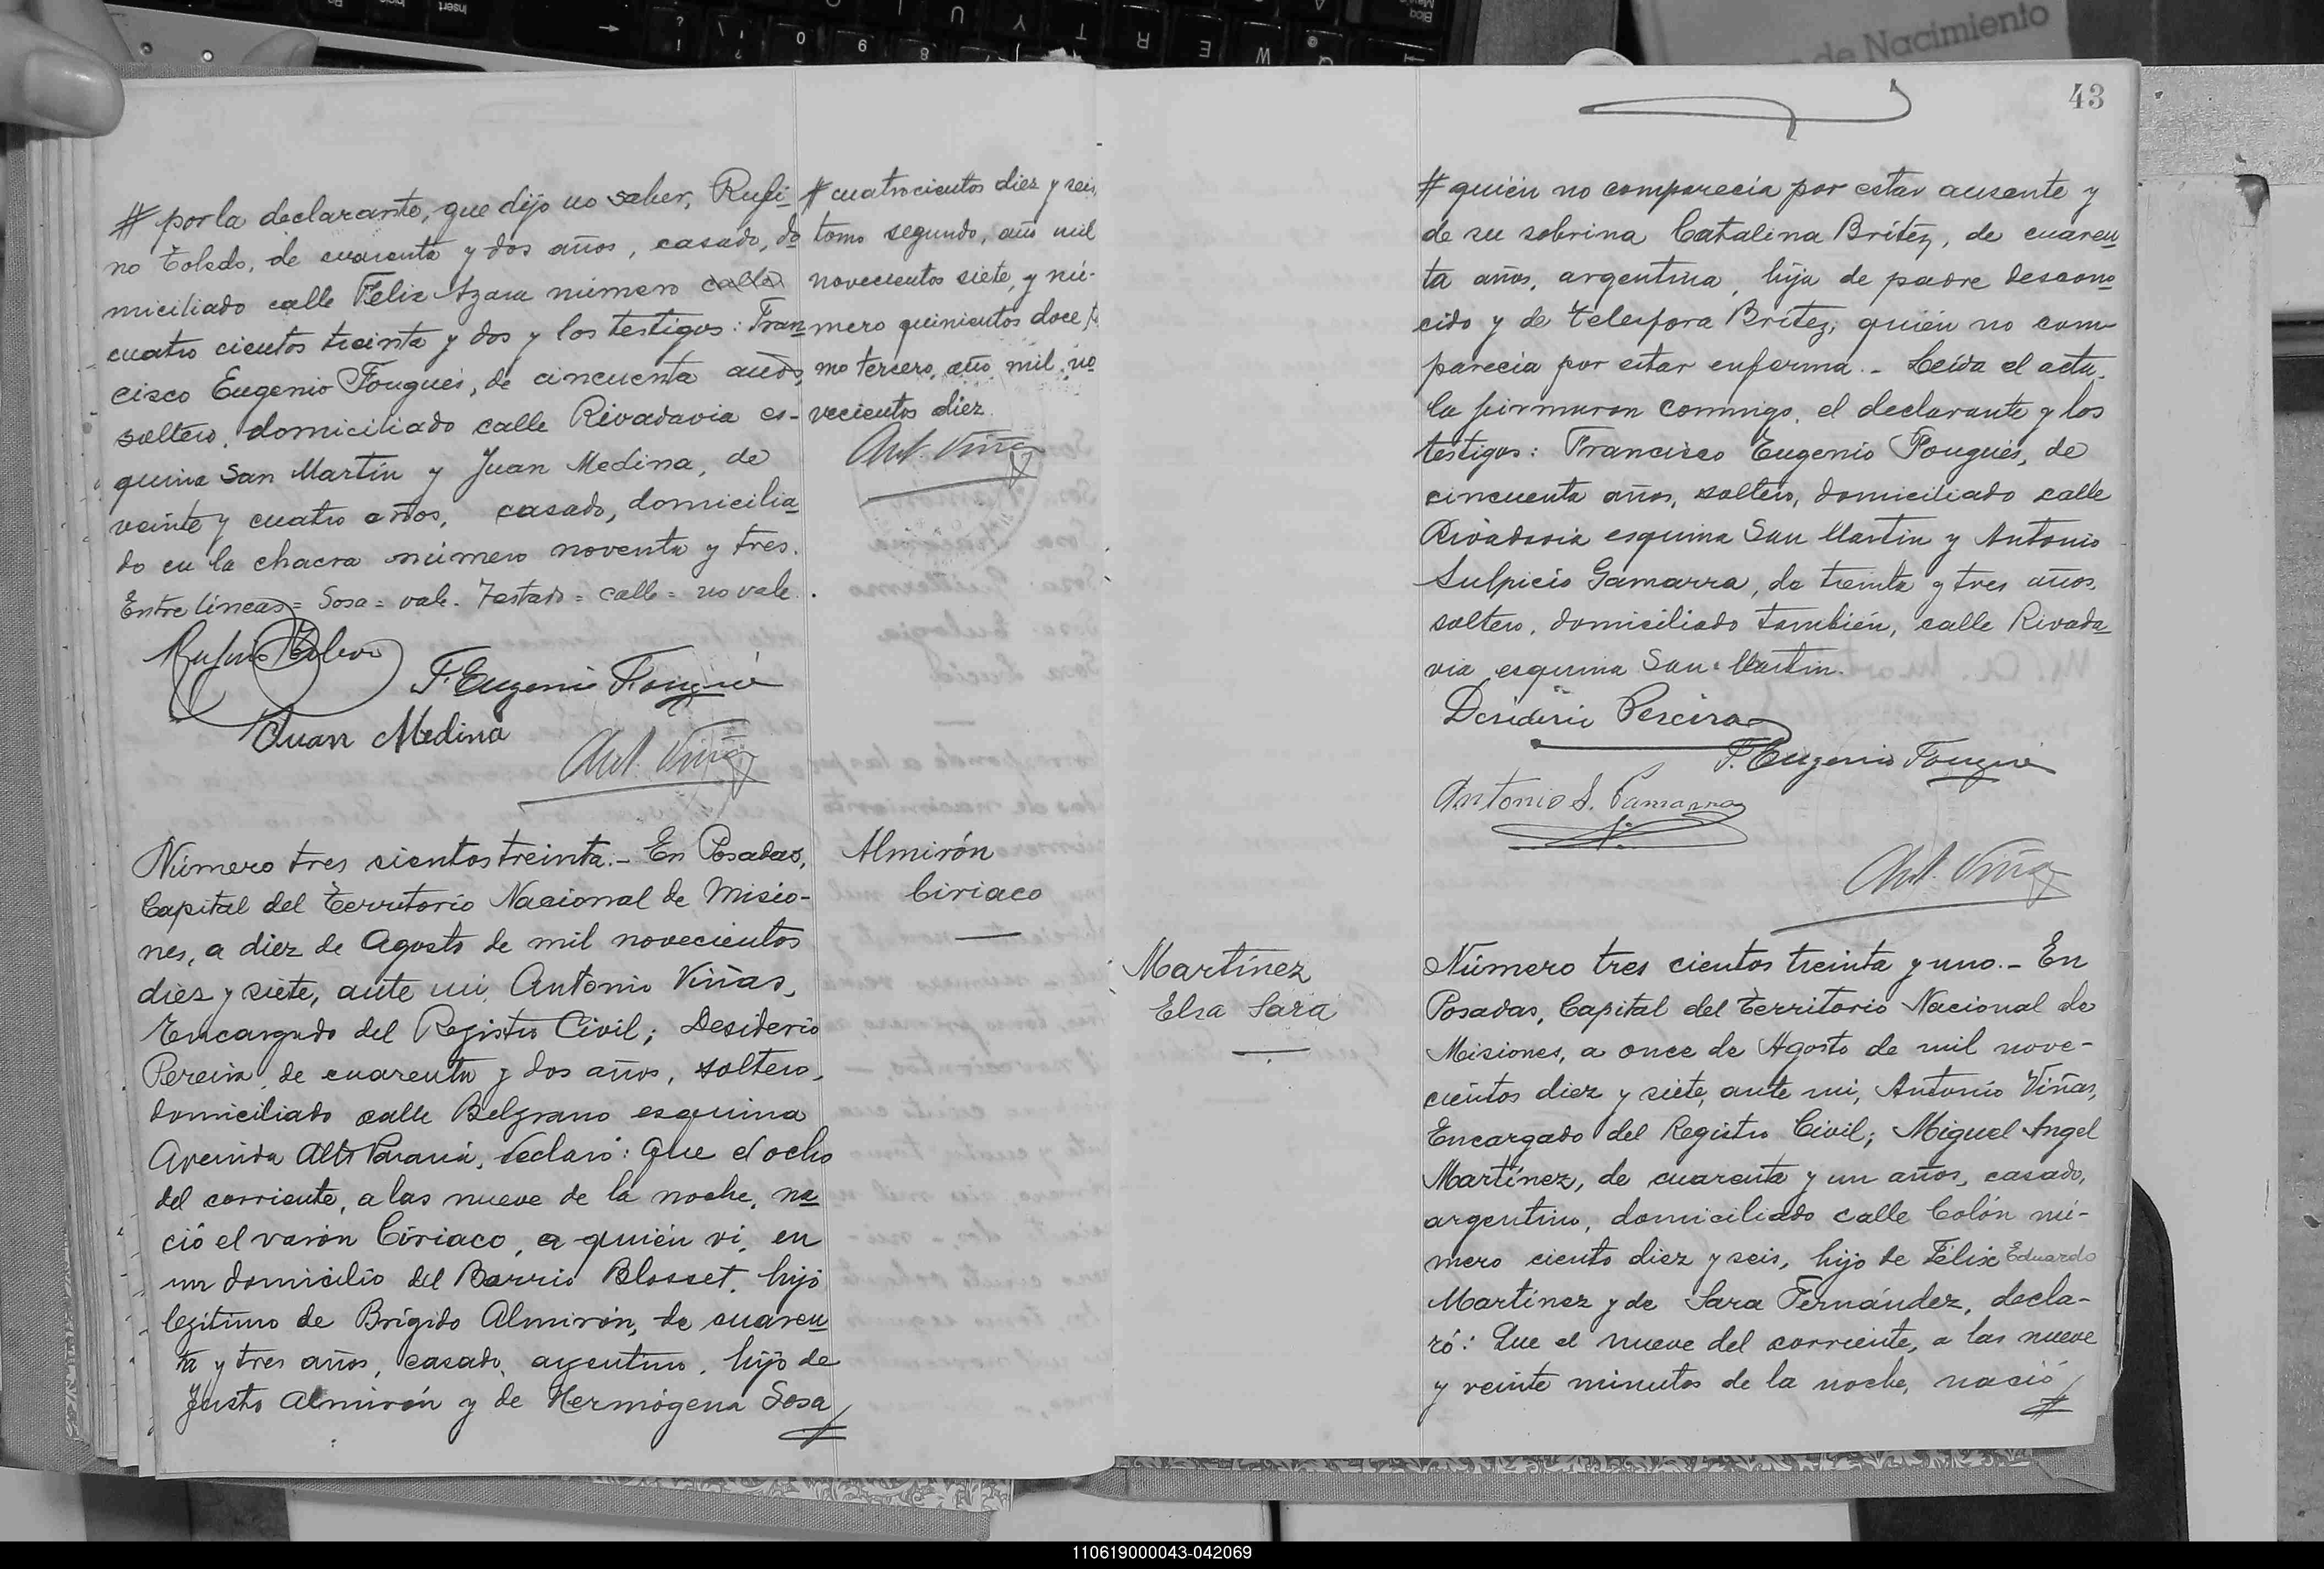 # por la declarante, que dijo no saber, Rufi-
no Toledo, de cuarenta y dos años, casado, do
miciliado calle Felix Azara número calle
cuatro cientos treinta y dos y los testigos: Fran
cisco Eugenio Fougués, de cincuenta años,
soltero, domiciliado calle Rivadavia es-
quina San Martín y Juan Medina, de
veinte y cuatro años, casado, domicilia
do en la chacra número noventa y tres.
Entre líneas = Sosa = vale. Testado = calle = no vale.
Rufino Toledo
F. Eugenio Fougués
Juan Medina
Ant. Viñas
# cuatrocientos diez y seis,
tomo segundo, año mil
novecientos siete, y nú-
mero quinientos doce to
mo tercero, año mil no
vecientos diez
Ant. Viñas
Número tres cientos treinta.- En Posadas,
Capital del Territorio Nacional de Misio-
nes, a diez de Agosto de mil novecientos
diez y siete, ante mí, Antonio Viñas,
Encargado del Registro Civil; Desiderio
Pereira, de cuarenta y dos años, soltero,
domiciliado calle Belgrano esquina
Avenida Alto Paraná, declaró: Que el ocho
del corriente, a las nueve de la noche, na
ció el varón Ciriaco, a quién vi, en
un domicilio del Barrio Blosset, hijo
legítimo de Brígido Almirón, de cuaren
ta y tres años, casado, argentino, hijo de
Justo Almirón y de Hermógena Sosa #
Almirón
Ciriaco
43
# quién no comparecía por estar ausente y
de su sobrina Catalina Britéz, de cuaren
ta años, argentina, hija de padre descono
cido y de Telesfora Britez, quién no com
parecía por estar enferma.- Leída el acta,
la firmaron conmigo, el declarante y los
testigos: Francisco Eugenio Fougués, de
cincuenta años, soltero, domiciliado calle
Rivadavia esquina San Martín y Antonio
Sulpicio Gamarra, de treinta y tres años,
soltero, domiciliado también, calle Rivada
via esquina San Martín.
Desiderio Pereira
F. Eugenio Fougués
Antonio S. Gamarra
Ant. Viñas
Martínez
Elsa Sara
Número tres cientos treinta y uno.- En
Posadas, Capital del Territorio Nacional de
Misiones, a once de Agosto de mil nove-
cientos diez y siete, ante mi, Antonio Viñas,
Encargado del Registro Civil; Miguel Angel
Martínez, de cuarenta y un años, casado,
argentino, domiciliado calle Colón nú-
mero ciento diez y seis, hijo de Félix Eduardo
Martínez y de Sara Fernández, decla-
ró: Que el nueve del corriente, a las nueve
y veinte minutos de la noche, nació #
de Nacimiento
110619000043-042069